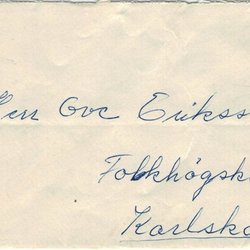 Herr Ove Erikss
Folkhögsk
Karlsko